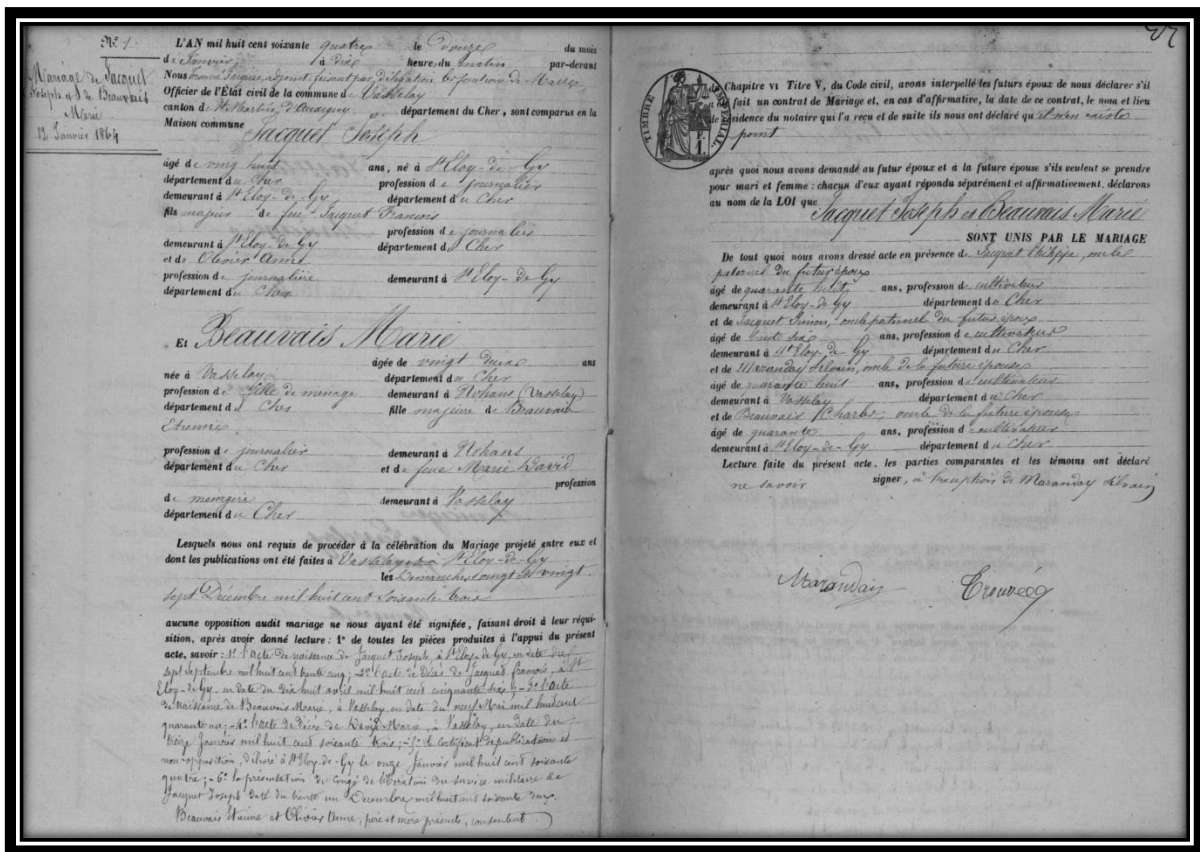 N° 1
Mariage de Jacquet
Joseph et de Beauvais
Marie
12 Janvier 1864
L'AN mil huit cent soixante quatre le douze du mois
de Janvier à dix heures du matin par-devant
Nous Adjoint faisant par délégation les fonctions de Maire
Officier de l'Etat civil de la commune de Vasselay
canton de St Martin d'Auxigny département du Cher, sont comparus en la
Maison commune Jacquet Joseph
âgé de vingt huit ans, né à St Eloy-de-Gy
département du Cher profession de journalier
demeurant à St Eloy-de-Gy département du Cher
fils majeur de feu Jacquet François
profession de journalier
demeurant à St Eloy-de-Gy département du Cher
et de Olivier Anne
profession de journalière demeurant à St Eloy-de-Gy
département du Cher
Et Beauvais Marie
âgée de vingt deux ans
née à Vasselay département du Cher
profession de fille de ménage demeurant à Nohans (Vasselay)
département du Cher fille majeure de Beauvais
Etienne
profession de journalier demeurant à Nohans
département du Cher et de feue Marie David
profession
de ménagère demeurant à Vasselay
département du Cher
Lesquels nous ont requis de procéder à la célébration du Mariage projeté entre eux et
dont les publications ont été faites à Vasselay et à St Eloy-de-Gy
les Dimanches vingt et vingt
sept Décembre mil huit cent soixante trois
aucune opposition audit mariage ne nous ayant été signifiée, faisant droit à leur réqui-
sition, après avoir donné lecture : 1° de toutes les pièces produites à l'appui du présent
acte, savoir : 1° l'acte de naissance de Jacquet Joseph, à St Eloy-de-Gy, en date du
sept Septembre mil huit cent trente cinq ; 2° l'acte de Décès de Jacquet François, à St
Eloy-de-Gy, en date du dix huit avril mil huit cent cinquante six ; 3° l'acte
de naissance de Beauvais Marie, à Vasselay, en date du neuf Mai mil huit cent
quarante un ; 4° l'acte de décès de David Marie, à Vasselay, en date du
treize Janvier mil huit cent soixante trois ; 5° le certificat de publications et
non-opposition, délivré à St Eloy-de-Gy le onze Janvier mil huit cent soixante
quatre ; 6° la présentation du congé de libération du service militaire de
Jacquet Joseph daté du trente un Décembre mil huit cent soixante deux.
Beauvais Etienne et Olivier Anne, père et mère présents, consentent.
TIMBRE IMPERIAL
Chapitre VI Titre V, du Code civil, avons interpellé les futurs époux de nous déclarer s'il
fait un contrat de Mariage et, en cas d'affirmative, la date de ce contrat, le nom et lieu
de résidence du notaire qui l'a reçu et de suite ils nous ont déclaré qu'il n'en existe
point
après quoi nous avons demandé au futur époux et à la future épouse s'ils veulent se prendre
pour mari et femme : chacun d'eux ayant répondu séparément et affirmativement, déclarons
au nom de la LOI que Jacquet Joseph et Beauvais Marie
SONT UNIS PAR LE MARIAGE
De tout quoi nous avons dressé acte en présence de Jacquet Philippe, oncle
paternel du futur époux
âgé de quarante huit ans, profession de cultivateur
demeurant à St Eloy-de-Gy département du Cher
et de Jacquet Simon, oncle paternel du futur époux
âgé de trente six ans, profession de cultivateur
demeurant à St Eloy-de-Gy département du Cher
et de Maranday Silvain, oncle de la future épouse
âgé de quarante huit ans, profession de cultivateur
demeurant à Vasselay département du Cher
et de Beauvais Charles, oncle de la future épouse
âgé de quarante ans, profession de cultivateur
demeurant à St Eloy-de-Gy département du Cher
Lecture faite du présent acte, les parties comparantes et les témoins ont déclaré
ne savoir signer, à l'exception de Maranday Silvain
Marandais